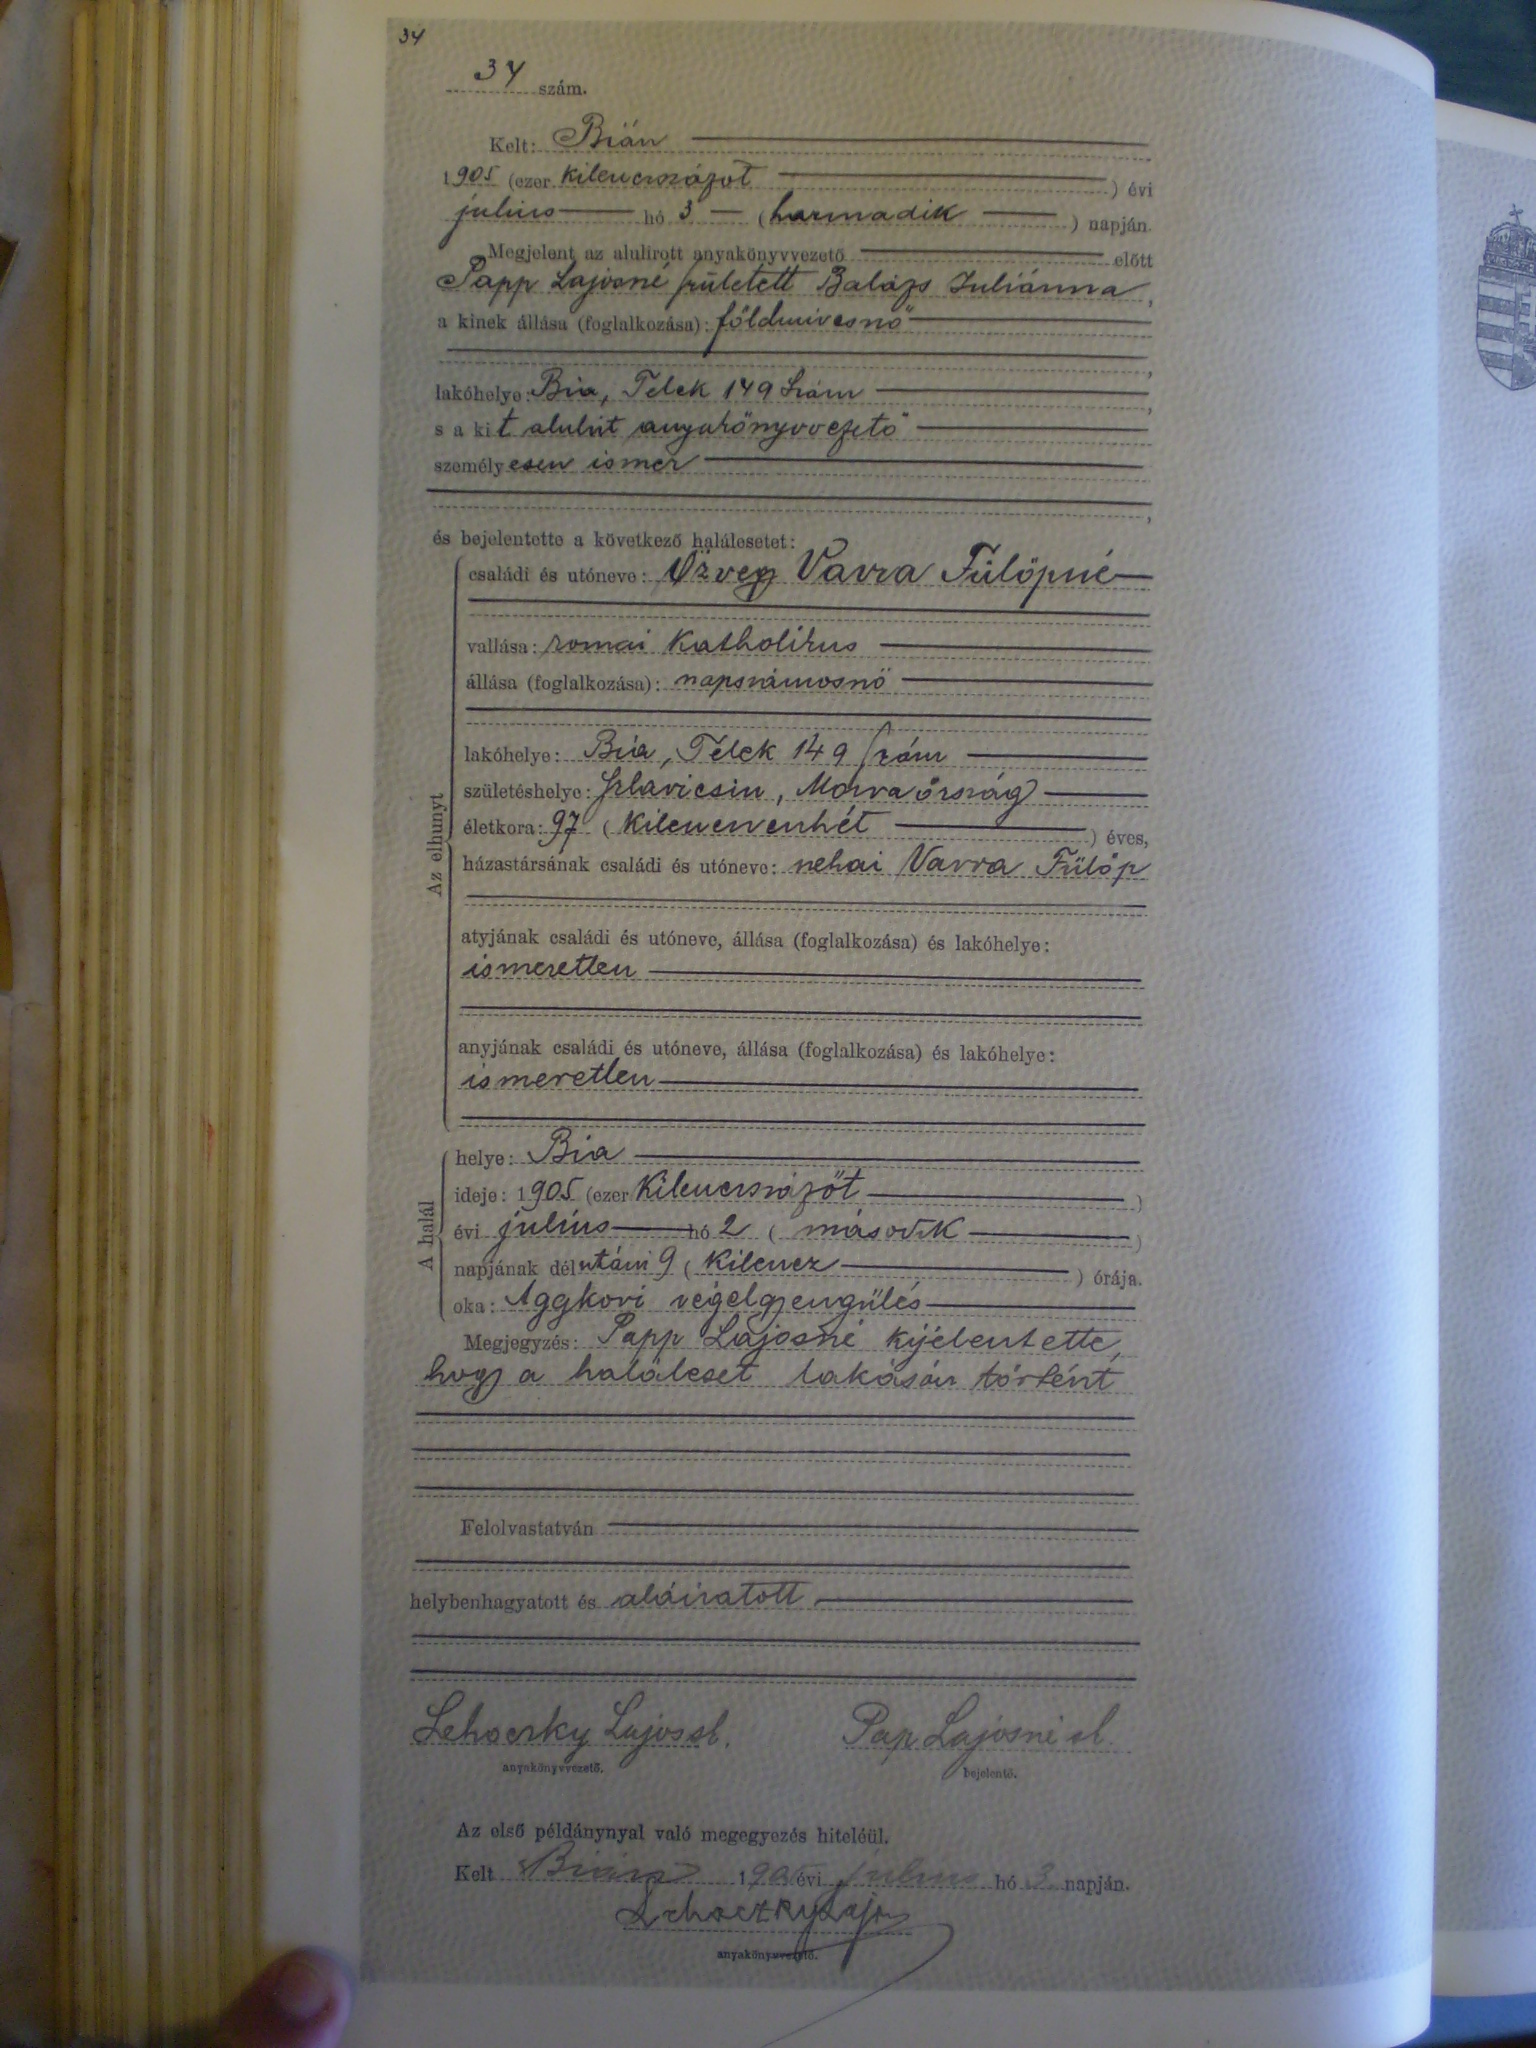 34
34 szám.
Kelt: Bián
1905 (ezer kilenczszázöt ) évi
julius hó 3 (harmadik ) napján.
Megjelent az alulirott anyakönyvvezető előtt
Papp Lajosné született Balázs Juliánna,
a kinek állása (foglalkozása): földmivesnő
lakóhelye: Bia, Telek 149 Szám
s a kit alulirt anyakönyvvezető
személyesen ismer
és bejelentette a következő halálesetet:
Az elhunyt
családi és utóneve: Özvegy Vavra Fülöpné
vallása: romai katholikus
állása (foglalkozása): napszámosnő
lakóhelye: Bia, Telek 149 szám
születéshelye: Szlavicsin, Morvaörszág
életkora: 97 (kilenczvenhét ) éves,
házastársának családi és utóneve: nehai Vavra Fülöp
atyjának családi és utóneve, állása (foglalkozása) és lakóhelye:
ismeretlen
anyjának családi és utóneve, állása (foglalkozása) és lakóhelye:
ismeretlen
A halál
helye: Bia
ideje: 1905 (ezer Kilenczszázöt )
évi július hó 2 (második )
napjának délutáni 9 (kilencz ) órája.
oka: Aggkori végelgyengülés
Megjegyzés: Papp Lajosné kijelentette,
hogy a haláleset lakásán történt
Felolvastatván
helybenhagyatott és aláiratott
Lehoczky Lajos sk. Pap Lajosné sk.
anyakönyvvezető. bejelentő.
Az első példánynyal való megegyezés hiteléül.
Kelt Bián 1905 évi julius hó 3. napján.
Lehoczky Lajos
anyakönyvvezető.